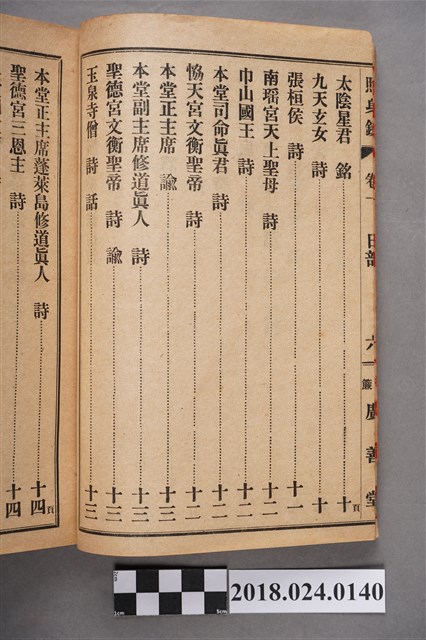 照身鏡 卷一 日部 六 廣善堂
太陰星君 銘 十頁
九天玄女 詩 十
張桓侯 詩 十一
南瑤宮天上聖母 詩 十二
巾山國王 詩 十二
本堂司命眞君 詩 十二
恊天宮文衡聖帝 詩 十二
本堂正主席 諭 十三
本堂副主席修道眞人 詩 十三
聖德宮文衡聖帝 詩 諭 十三
玉泉寺僧 詩 話 十三
本堂正主席蓬萊島修道眞人 詩 十四頁
聖德宮三恩主 詩 十四
2018.024.0140
1cm
5cm